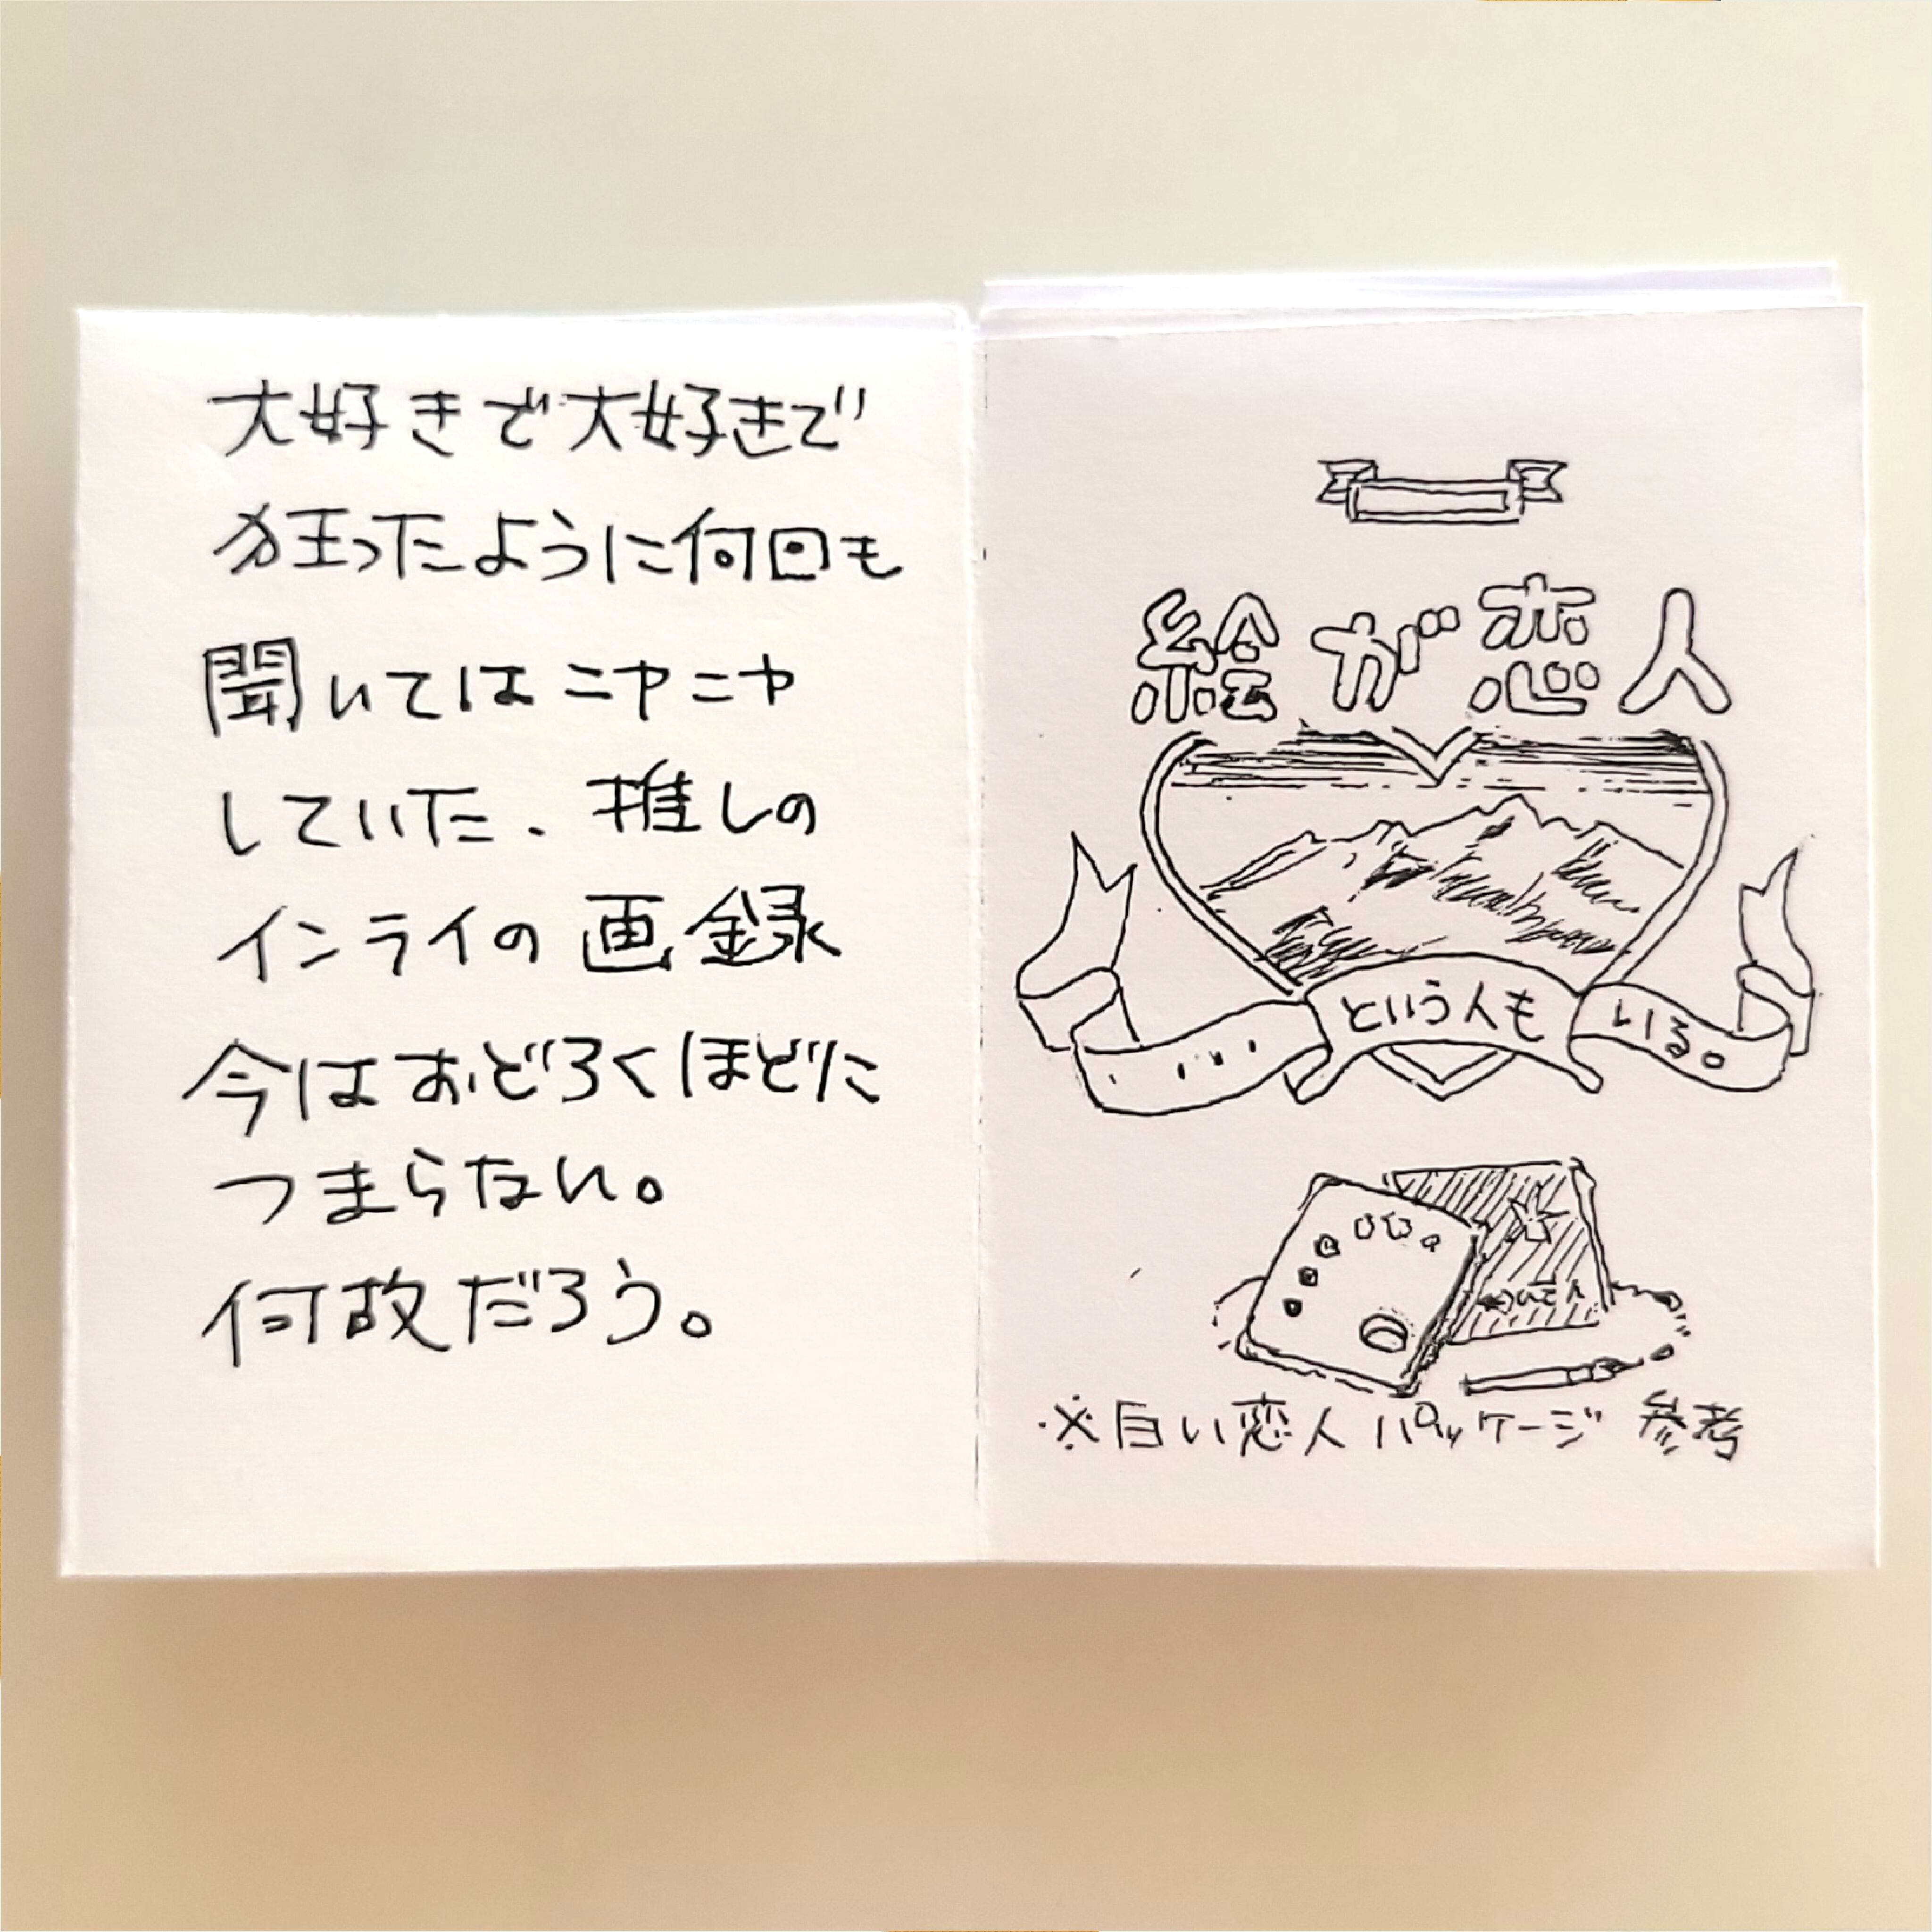 大好きで大好きで
狂ったように何回も
聞いてはニヤニヤ
していた、推しの
インライの画録
今はおどろくほどに
つまらない。
何故だろう。
絵が恋人
という人も
いる。
※白い恋人パッケージ 参考